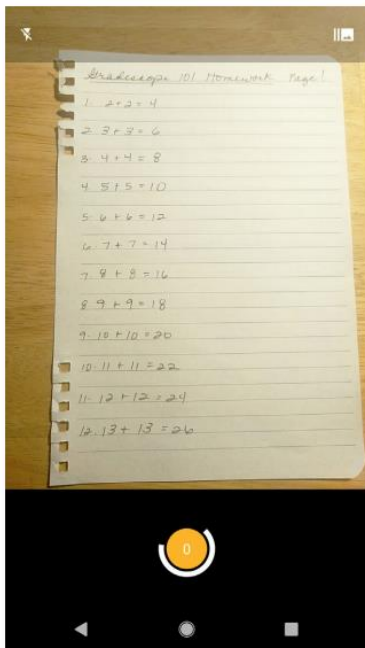 Gradescope 101 Homework Page 1
1. 2+2=4
2. 3+3=6
3. 4+4=8
4. 5+5=10
5. 6+6=12
6. 7+7=14
7. 8+8=16
8 9+9=18
9. 10+10=20
10. 11+11=22
11. 12+12=24
12. 13+13=26
0